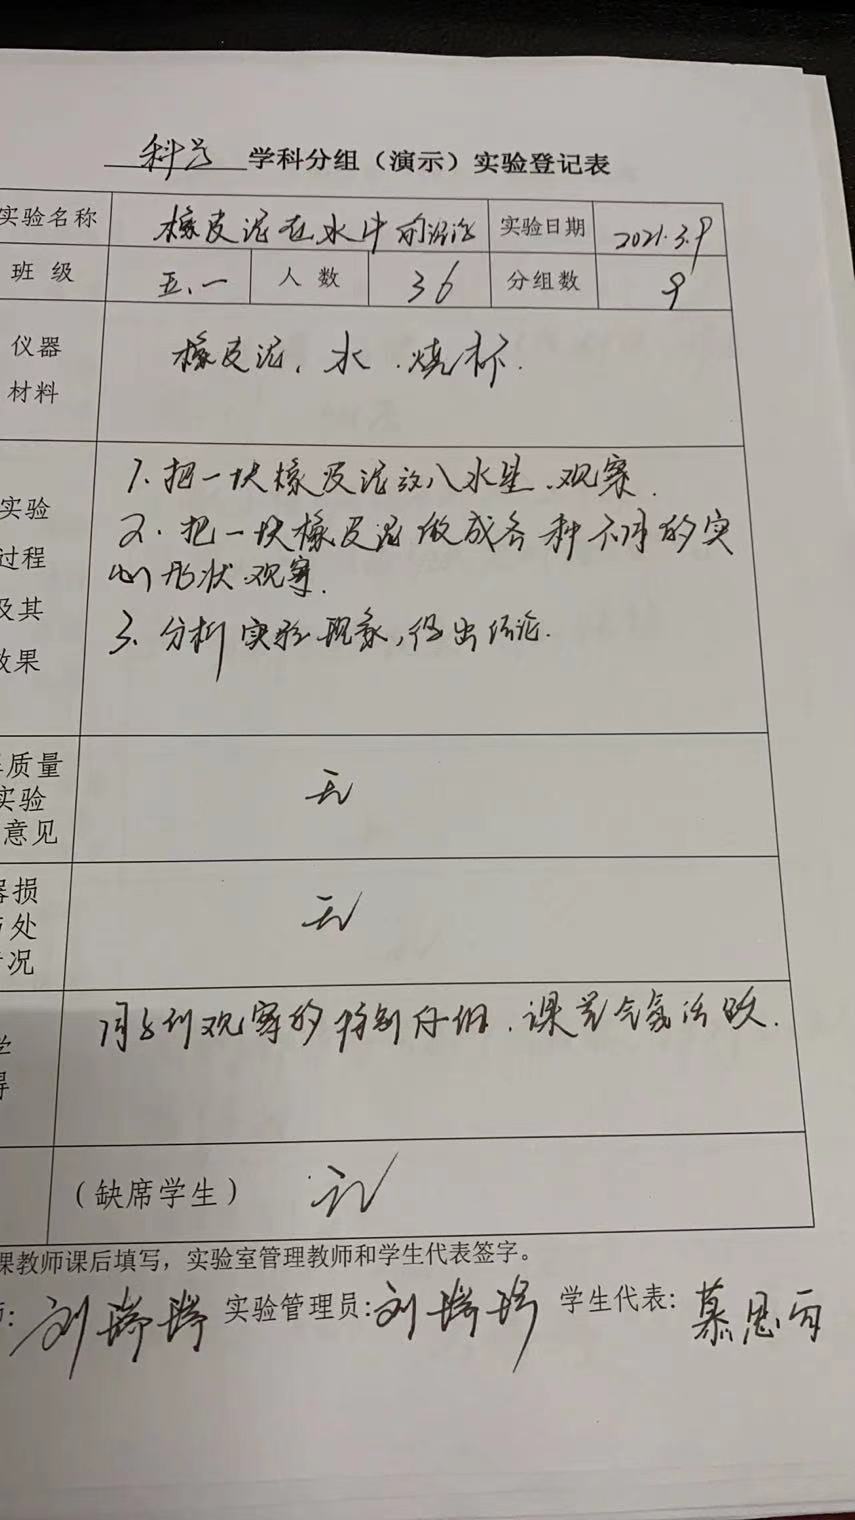 科学 学科分组（演示）实验登记表
实验名称 橡皮泥在水中的沉浮 实验日期 2021.3.9
班 级 五.一 人 数 36 分组数 9
仪器
材料
橡皮泥、水、烧杯.
实验
过程
及其
效果
1. 把一块橡皮泥放入水里、观察.
2. 把一块橡皮泥做成各种不同的实
心形状、观察.
3. 分析实验现象,得出结论.
质量
实验
意见
无
损
处
况
无
学
得
同学们观察的特别仔细、课堂气氛活跃.
（缺席学生） 无
课教师课后填写，实验室管理教师和学生代表签字。
: 刘瑞瑞 实验管理员:刘瑞瑞 学生代表: 慕思雨